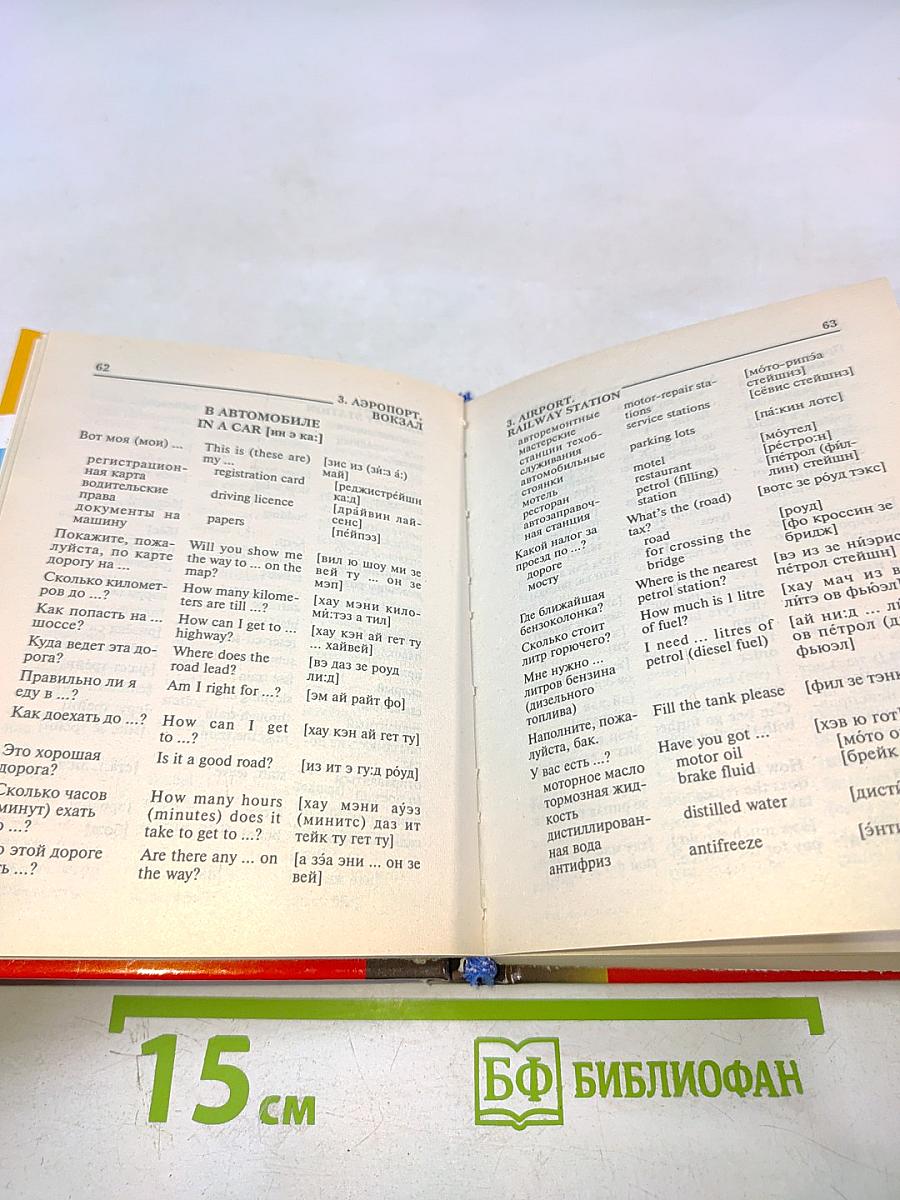 62
3. АЭРОПОРТ.
ВОКЗАЛ
В АВТОМОБИЛЕ
IN A CAR [ин э ка:]
Вот моя (мои) ...
This is (these are)
my ...
[зис из (зи:з а:)
май]
регистрацион-
ная карта
registration card
[реджистрéйшн
ка:д]
водительские
права
driving licence
[дрáйвин лай-
сенс]
документы на
машину
papers
[пéйпэз]
Покажите, пожа-
луйста, по карте
дорогу на ...
Will you show me
the way to ... on the
map?
[вил ю шоу ми зе
вей ту ... он зе
мэп]
Сколько километ-
ров до ...?
How many kilome-
ters are till ...?
[хау мэни кило-
ми:тэз а тил]
Как попасть на ...
шоссе?
How can I get to ...
highway?
[хау кэн ай гет ту
... хайвей]
Куда ведет эта до-
рога?
Where does the
road lead?
[вэ даз зе роуд
ли:д]
Правильно ли я
еду в ...?
Am I right for ...?
[эм ай райт фо]
Как доехать до ...?
How can I get
to ...?
[хау кэн ай гет ту]
Это хорошая
дорога?
Is it a good road?
[из ит э гу:д рóуд]
Сколько часов
минут) ехать
...?
How many hours
(minutes) does it
take to get to ...?
[хау мэни áуэз
(минитс) даз ит
тейк ту гет ту]
этой дороге
...?
Are there any ... on
the way?
[а зэ́а эни ... он зе
вей]
63
3. AIRPORT.
RAILWAY STATION
авторемонтные
мастерские
motor-repair sta-
tions
[мóто-рипэ́а
стейшнз]
станции техоб-
служивания
service stations
[сéвис стейшнз]
автомобильные
стоянки
parking lots
[пá:кин лотс]
мотель
motel
[мóутел]
ресторан
restaurant
[рéстро:н]
автозаправоч-
ная станция
petrol (filling)
station
[пéтрол (фил-
лин) стейшн]
Какой налог за
проезд по ...?
What's the (road)
tax?
[вотс зе рóуд тэкс]
дороге
road
[роуд]
мосту
for crossing the
bridge
[фо кроссин зе
бридж]
Где ближайшая
бензоколонка?
Where is the nearest
petrol station?
[вэ из зе ни́эрис
пéтрол стейшн]
Сколько стоит
литр горючего?
How much is 1 litre
of fuel?
[хау мач из в
ли́тэ ов фьюэл]
Мне нужно ...
литров бензина
(дизельного
топлива)
I need ... litres of
petrol (diesel fuel)
[ай ни:д ...
ов пéтрол
фьюэл]
Наполните, пожа-
луйста, бак.
Fill the tank please
[фил зе тэнк
У вас есть ...?
Have you got ...
[хэв ю гот
моторное масло
motor oil
[мóто
тормозная жид-
кость
brake fluid
[брейк
дистиллирован-
ная вода
distilled water
[дисти
антифриз
antifreeze
[э́нти
15 см
БФ БИБЛИОФАН